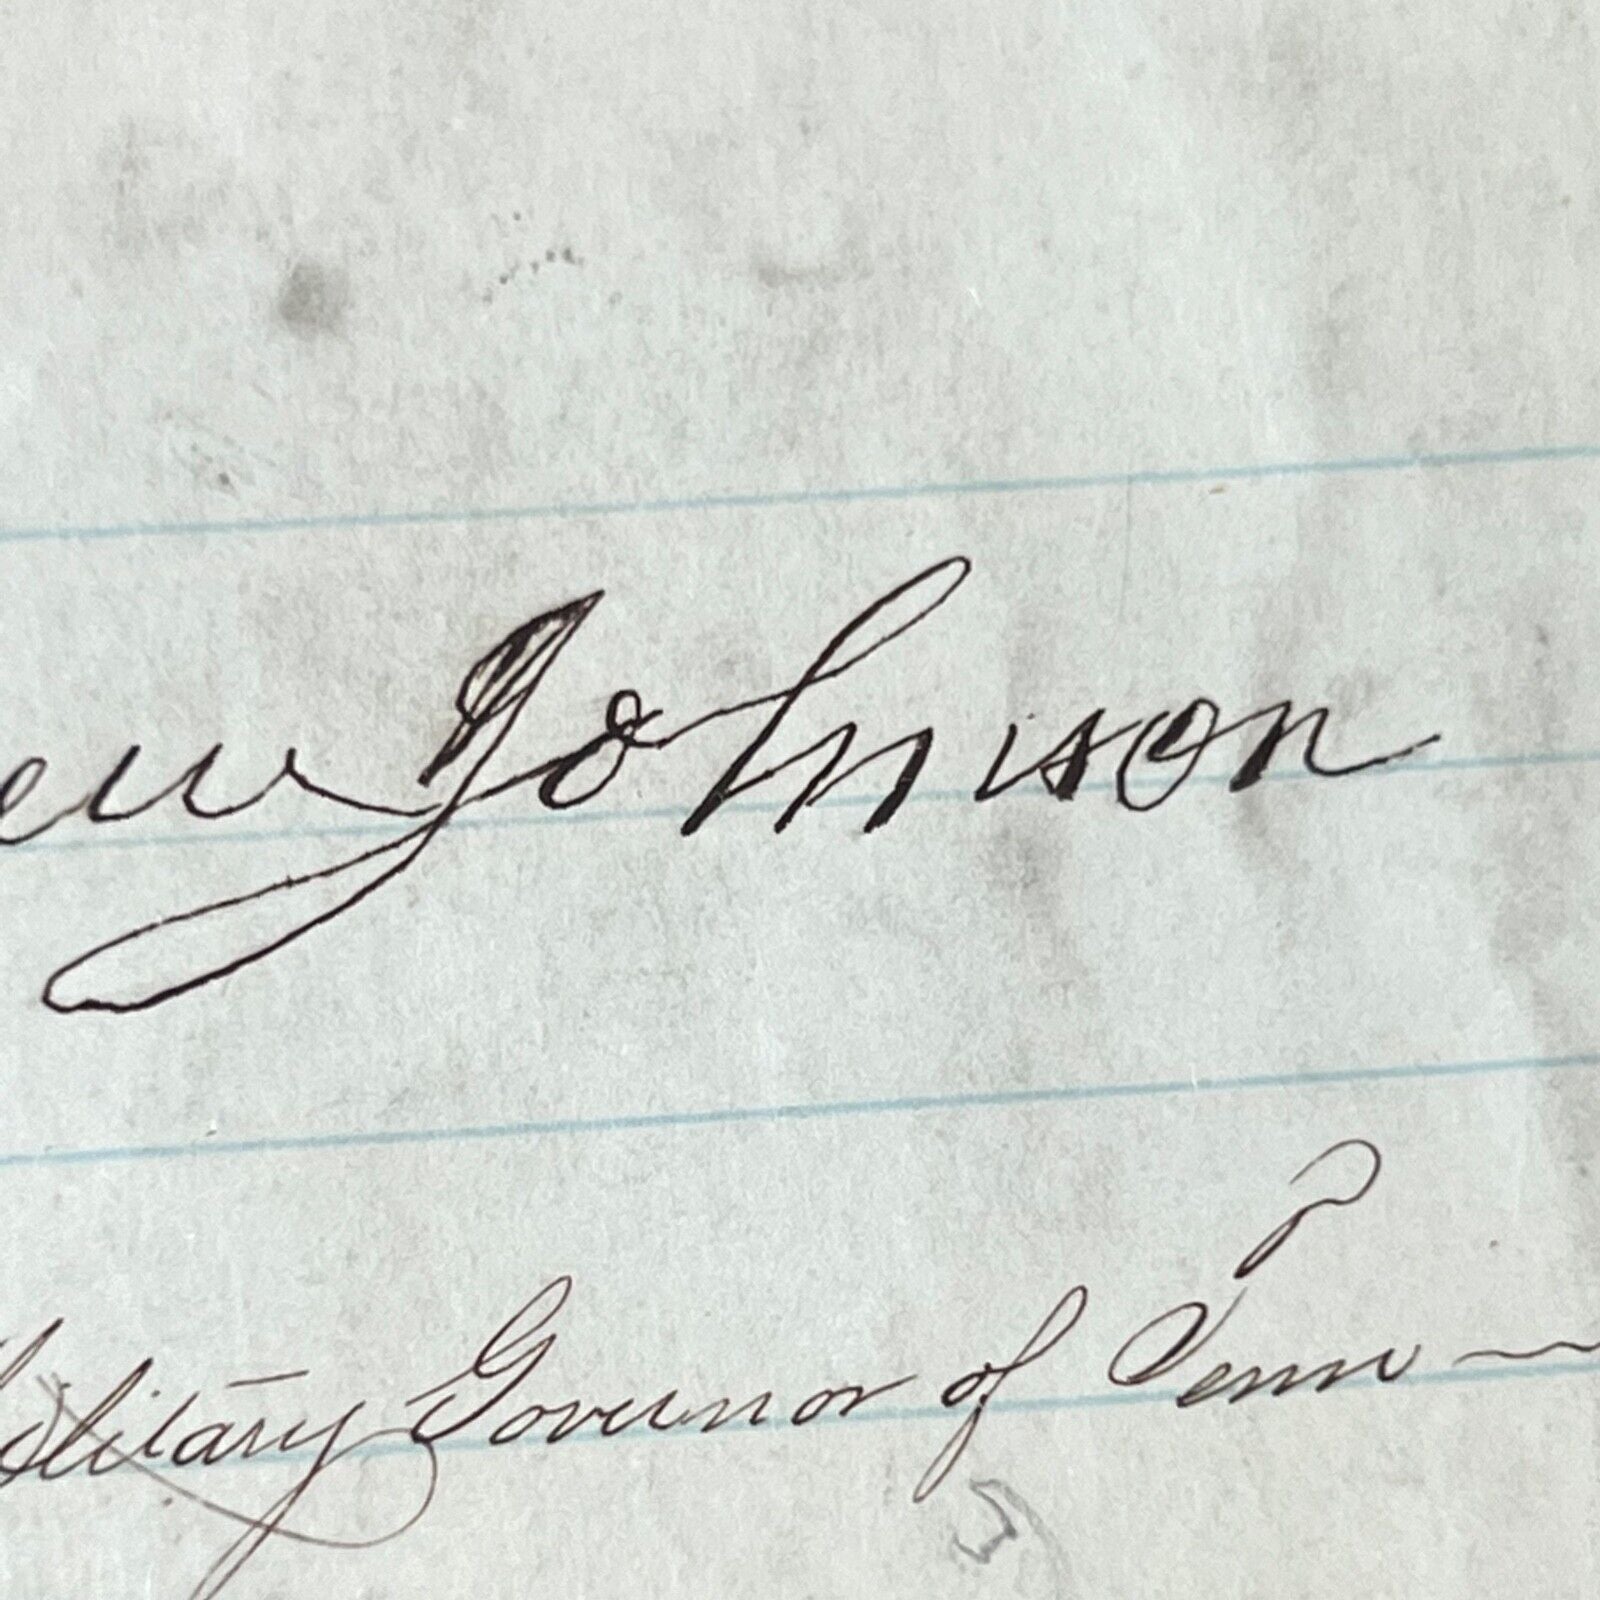 ew Johnson
Military Governor of Tenn